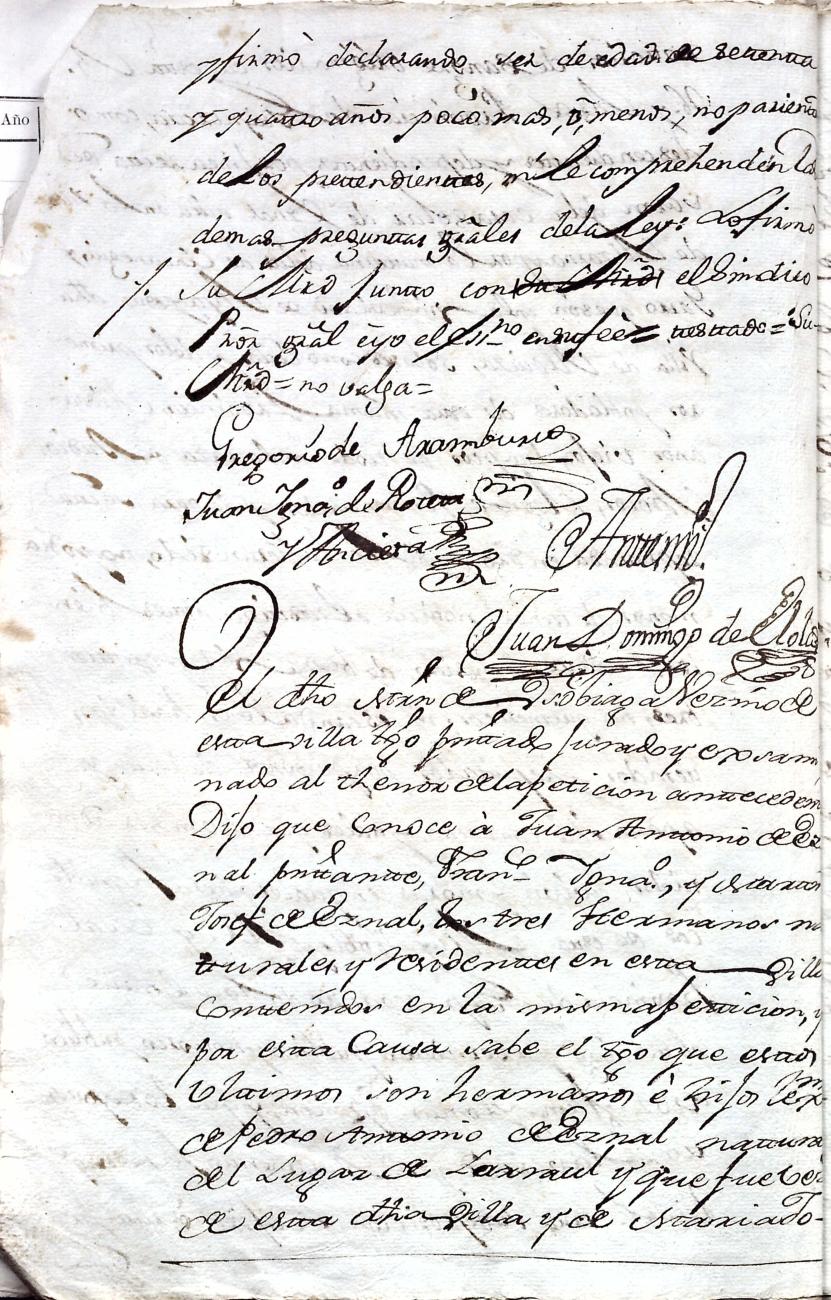 y firmò declarando ser de edad de settenta
y quatro años poco mas, ò, menos, no parient
de los prettendienttes, ni le comprehenden las
demas preguntas grãles de la Ley: Lo firmò
/. Su Mrd Juntto con su Mrd el Sindico
Pror gral è yo el essno en su feè = testtado = Su
Mrd = no valga =
Gregorio de Aramburu
Juan Igno. de Roteta
y Ancieta
Antemi.
Juan Domingo de
Año
El dho Martn de Vezino de
esta villa tgo prnttado Jurado y exsami
nado al thenor de la peticion anttecedem
Dijo que conoce à Juan Anttonio de Ez
nal prnttantte, Frano Igna.o, y Marttin
Josef de Eznal, los tres Hermanos na
tturales y residenttes en estta Villa
Conttenidos en la misma pettizion, y
por estta Causa sabe el tgo que esttos
Ultimos son hermanos è hijos
de Pedro Antonio de Eznal nattura
del Lugar de Larraul y que fue Vez
de estta dha Villa y de Maria Jo-